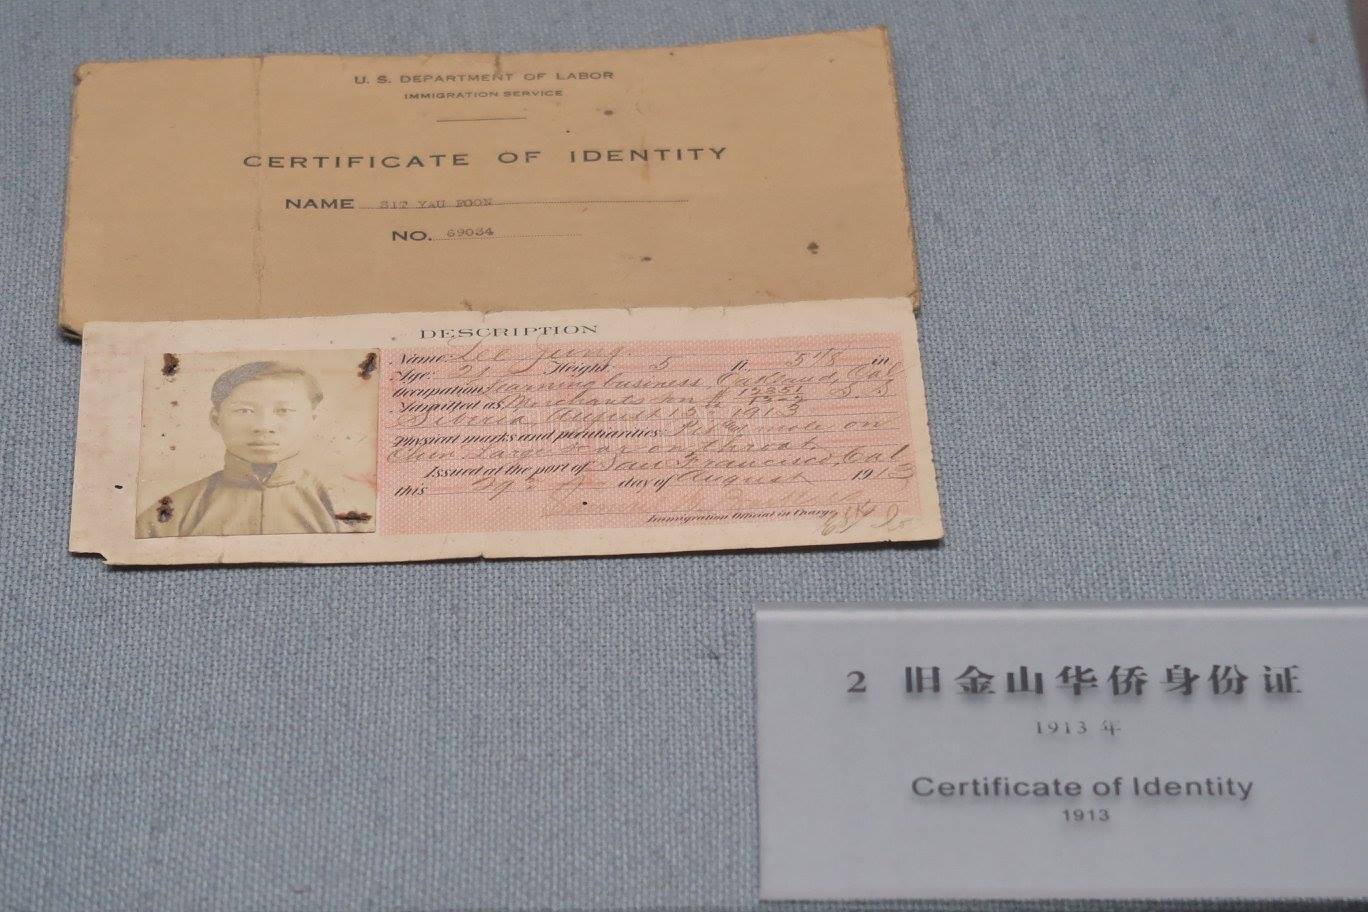 U. S. DEPARTMENT OF LABOR
IMMIGRATION SERVICE
CERTIFICATE OF IDENTITY
NAME SIT YAU FOON
NO. 69034
DESCRIPTION
Name: Lee Jung
Age: 21 Height, 5 ft. 5 7/8 in
Occupation, Learning business, Oakland, Cal
Admitted as Merchants son S. S
Siberia August 12, 1913
Physical marks and peculiarities: mole on
Chin. Large scar on throat
Issued at the port of San Francisco, Cal
this 29 day of August 1913
Immigration Official in Charge
2 旧金山华侨身份证
1913 年
Certificate of Identity
1913